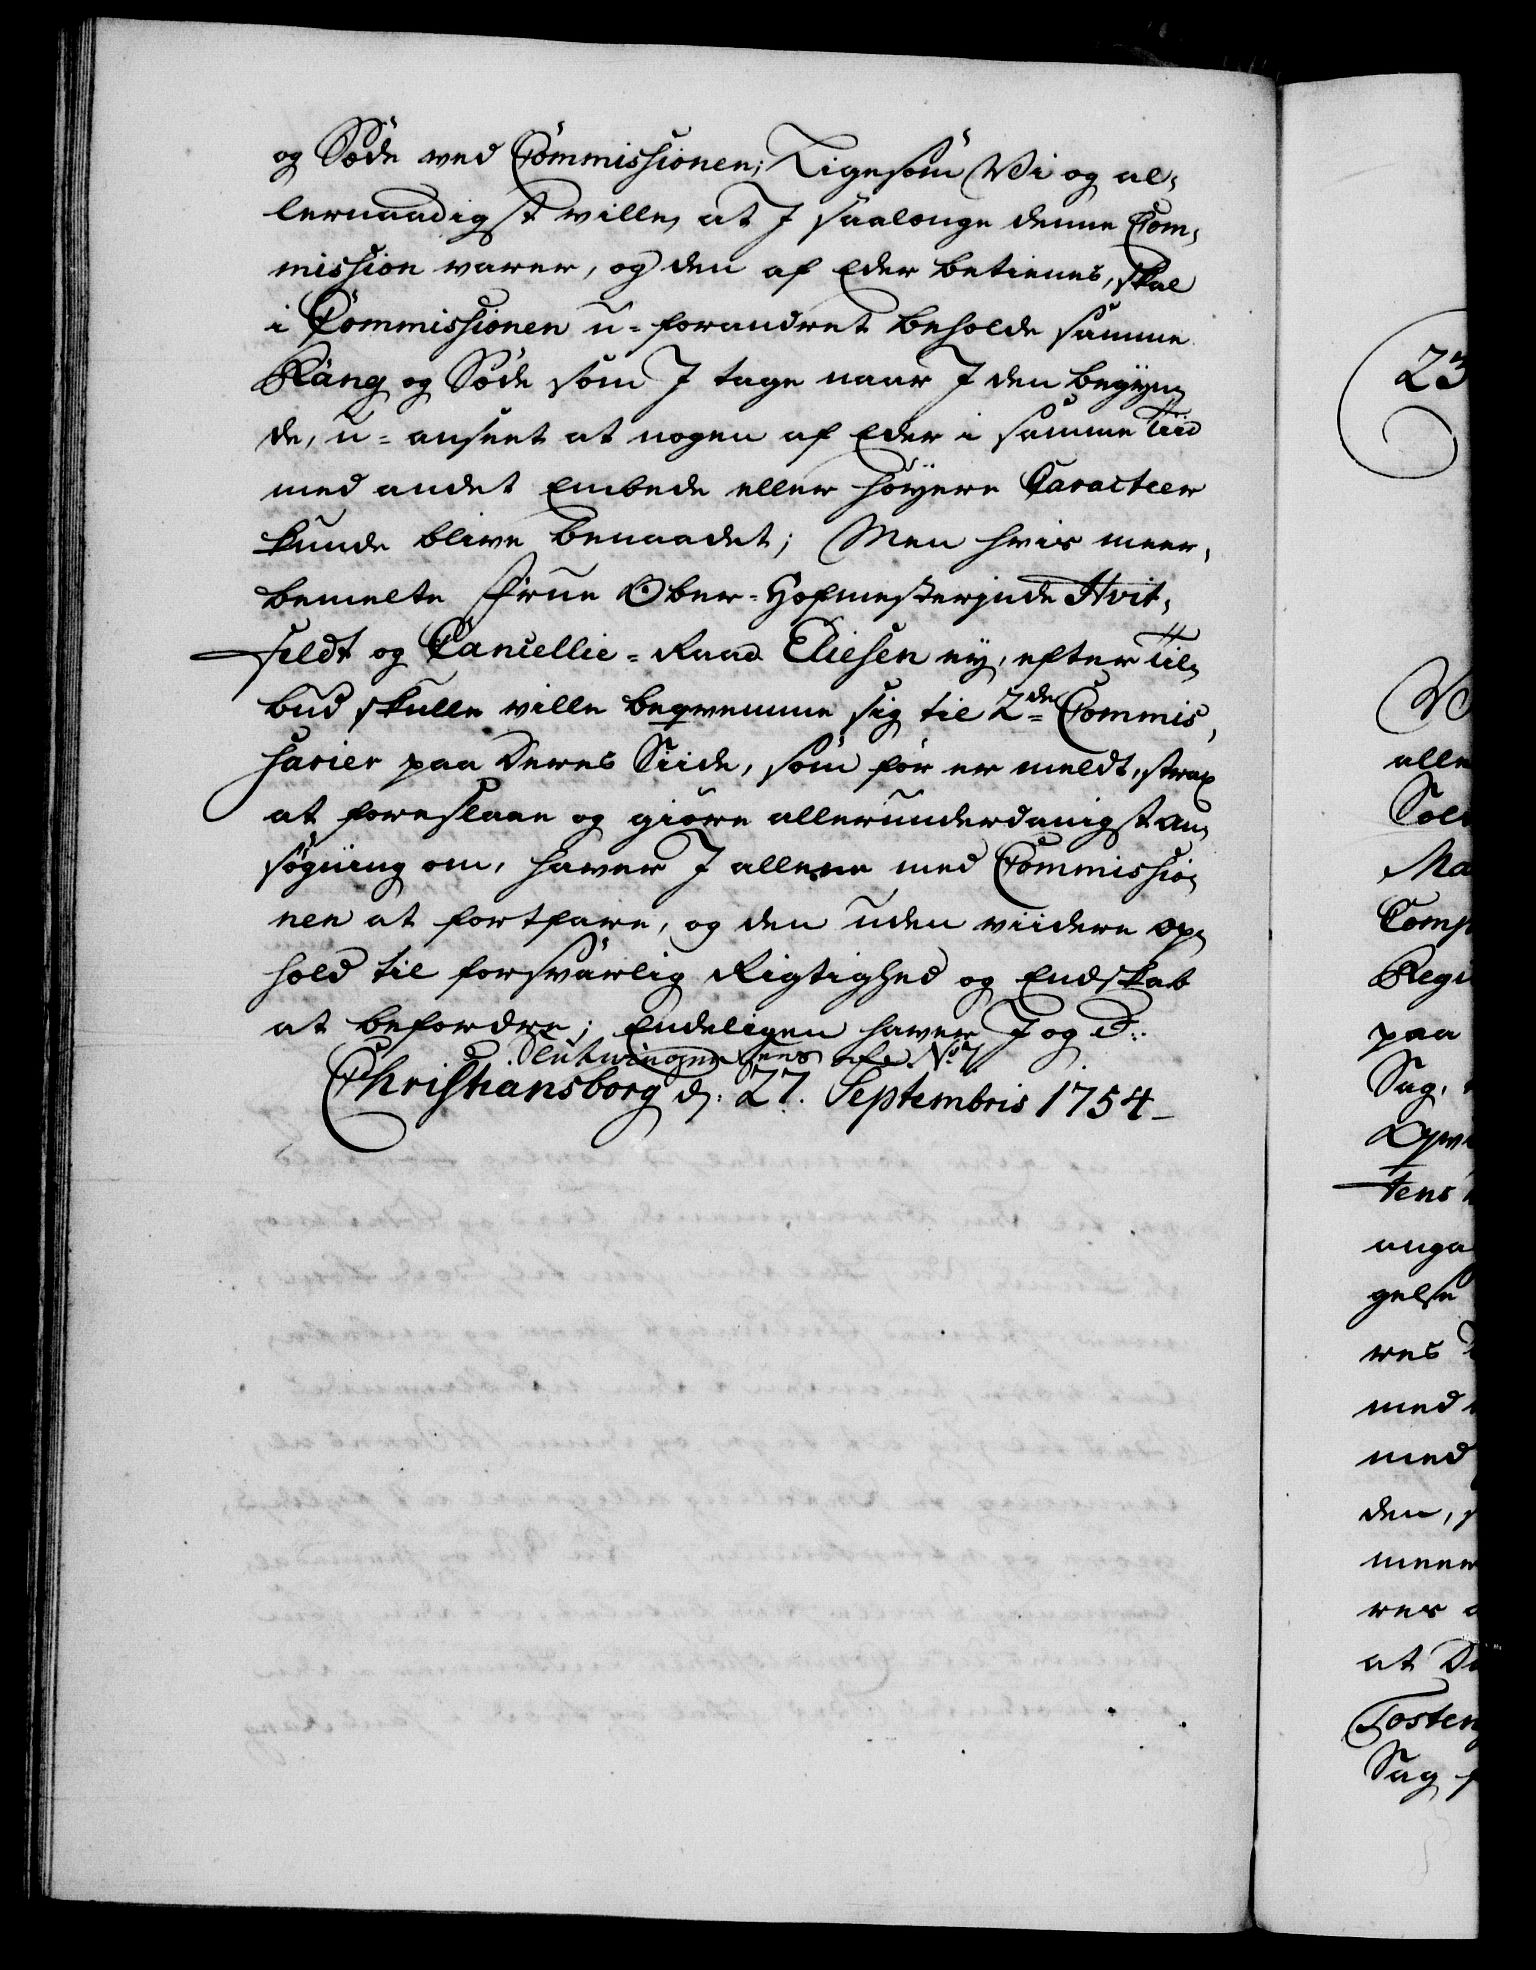 og Søde ved Commissionen; Ligesom Vi og al-
lernaadigst ville, at I saalænge denne Com-
mission varer, og den af Eder betienes, skal
i Commissionen u-forandret beholde samme
Rang og Søde som I tage naar I den begyn-
de, u-anseet at nogen af Eder i samme Tiid
med andet Embede eller høyere Caracteer
kunde blive benaadet; Men hvis meer-
bemelte Frue Ober-Hofmesterinde Hvit-
feldt og Cancellie-Raad Eliesen ey, efter Til-
bud skulle ville beqvemme sig til 2de Commis-
sarier paa Deres Siide, som før er meldt, strax
at foreslaae og giøre allerunderdanigst An-
søgning om, haver I allene med Commissio-
nen at fortfare, og den uden viidere Op-
hold til forsvarlig Rigtighed og Endskab
at befordre; Endeligen haver I og D:
Slutningen sees
Christiansborg d: 27. Septembris 1754
23
alle
Ma
Comp
Reg
paa
Sag,
tens
anga
gelse
res
med
med
den,
meer
res
at
Tosten
Sag